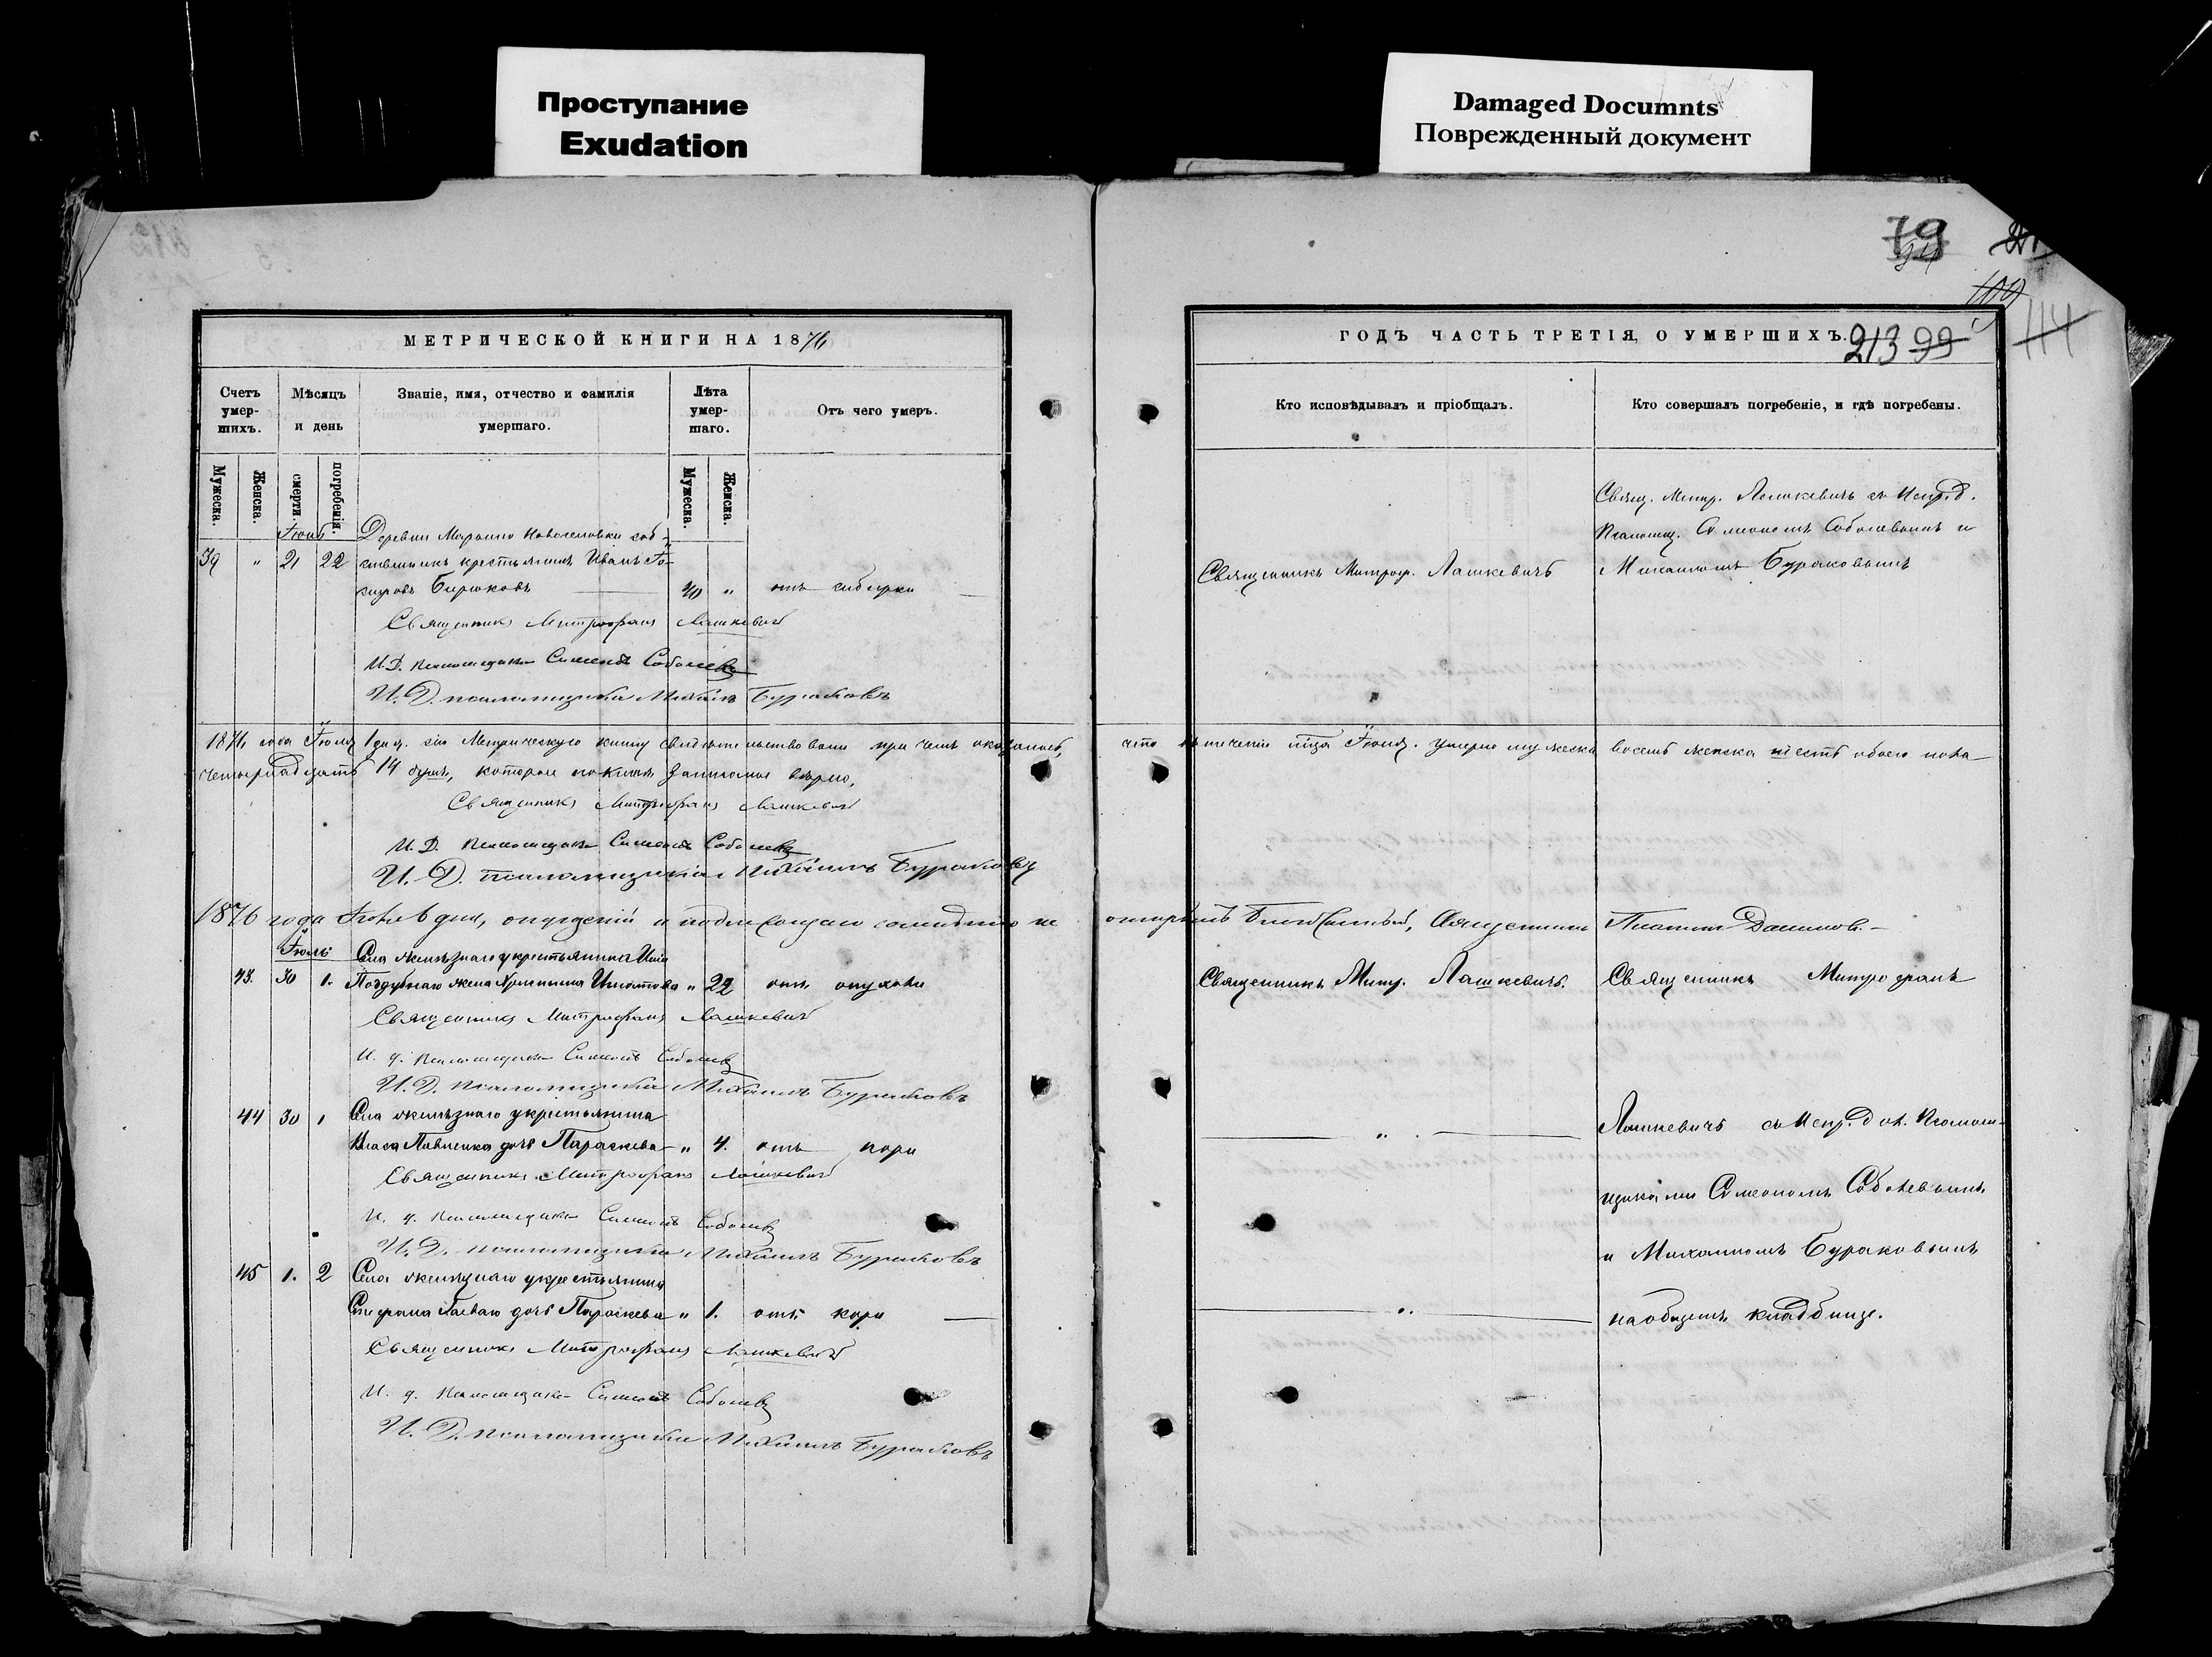 Проступание
Exudation
Damaged Documnts
Поврежденный документ
79
213 99
109
114
МЕТРИЧЕСКОЙ КНИГИ НА 1876
Счетъ умер-шихъ.
Мѣсяцъ и день
Званіе, имя, отчество и фамилія умершаго.
Лѣта умер-шаго.
Отъ чего умеръ.
Мужеска.
Женска.
смерти
погребенія.
Мужеска.
Женска.
Іюнь
Деревни Марьино
39 " 21 22 крестьянинъ Иванъ
Бирюковъ 40 " отъ сибирки
Священникъ Митрофанъ Лашкевичъ
И.Д. псаломщика Симеонъ Соболевъ
И.Д. псаломщика Михаилъ Бураковъ
1876 года Іюля 1 дня. сію Метрическую книгу свидѣтельствовали при чемъ оказалось,
четырнадцать 14 душъ, которые записаны вѣрно,
Священникъ Митрофанъ Лашкевичъ
И.Д. псаломщика Симеонъ Соболевъ
И.Д. псаломщика Михаилъ Бураковъ
1876 года дня, опущеній и
Іюль
Села желѣзнаго у крестьянина
43. 30 1. жена Игнатова " 22 отъ опухоли
Священникъ Митрофанъ Лашкевичъ
И. д. псаломщика Симеонъ Соболевъ
И.Д. псаломщика Михаилъ Бураковъ
44 30 1 Села желѣзнаго у крестьянина
Власа Павленка дочь Параскева " 4. отъ кори
Священникъ Митрофанъ Лашкевичъ
И. д. псаломщика Симеонъ Соболевъ
И.Д. псаломщика Михаилъ Бураковъ
45 1. 2 Села желѣзнаго у крестьянина
Стефана дочь Параскева " 1. отъ кори
Священникъ Митрофанъ Лашкевичъ
И. д. псаломщика Симеонъ Соболевъ
И.Д. псаломщика Михаилъ Бураковъ
ГОДЪ ЧАСТЬ ТРЕТІЯ, О УМЕРШИХЪ.
Кто исповѣдывалъ и пріобщалъ.
Кто совершалъ погребеніе, и гдѣ погребены.
Свящ. Митр. Лашкевичъ съ Испр.д.
Псаломщ. Симеономъ Соболевымъ и
Священникъ Митроф. Лашкевичъ
Михаиломъ Бураковымъ
что въ теченіи м-ца Іюня. умерло мужеска восемь женска шесть обоего пола
Священникъ
Священникъ Митр. Лашкевичъ.
Священникъ Митрофанъ
Лашкевичъ съ Испр. дол. Псалом-
щиками Симеономъ Соболевымъ
и Михаиломъ Бураковымъ
на общемъ кладбищѣ.